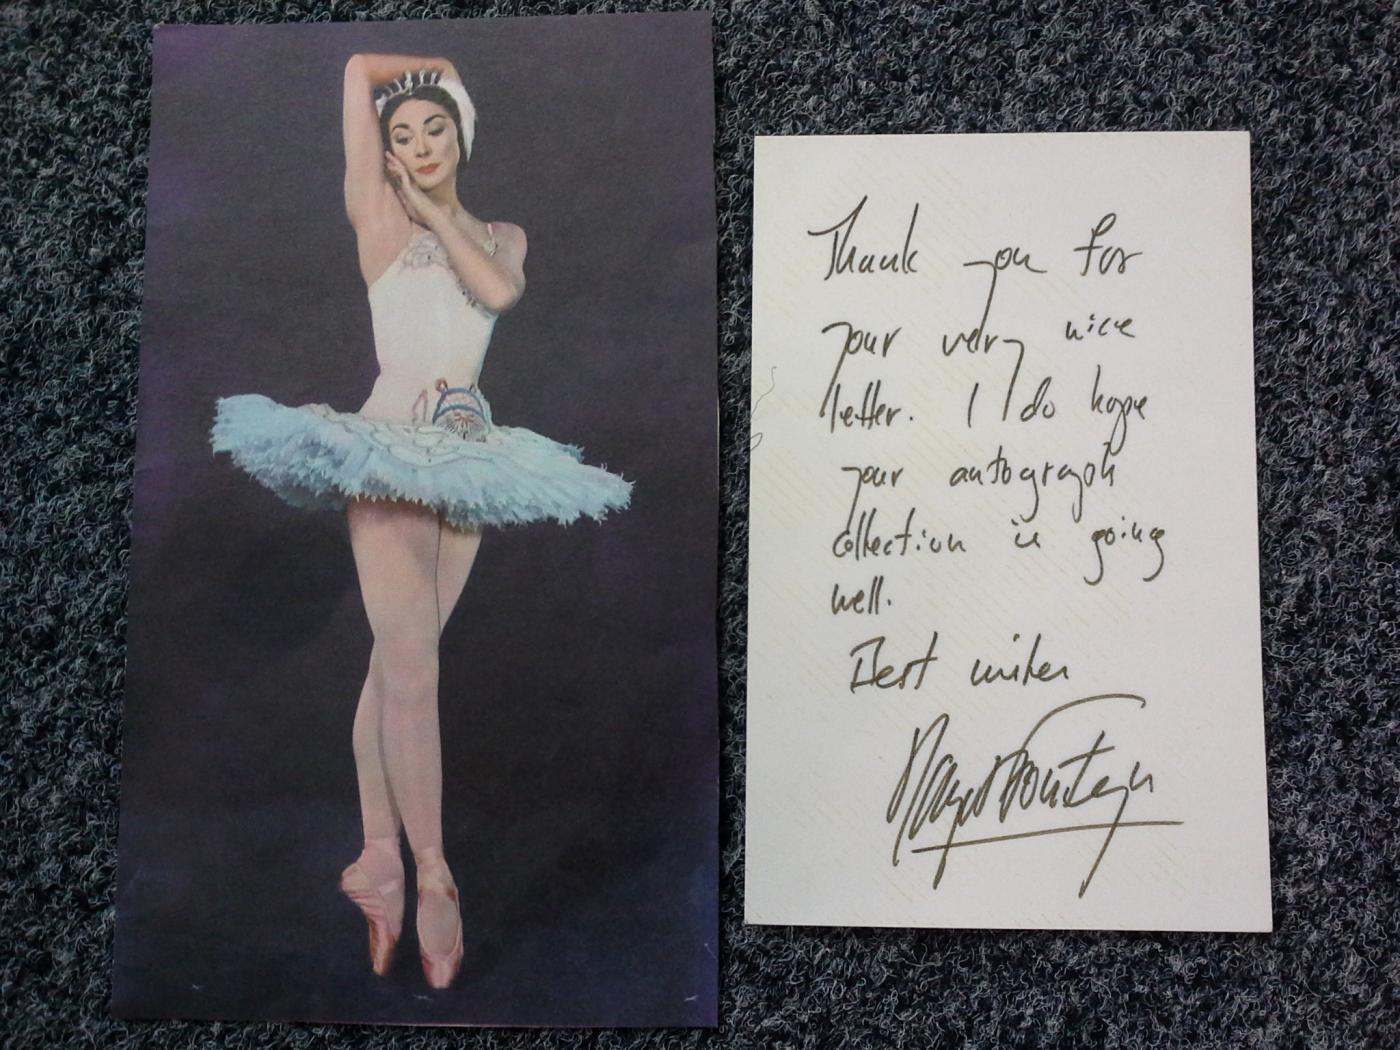 Thank you for
your very nice
letter. I do hope
your autograph
collection is going
well.
Best wishes
Margot Fonteyn